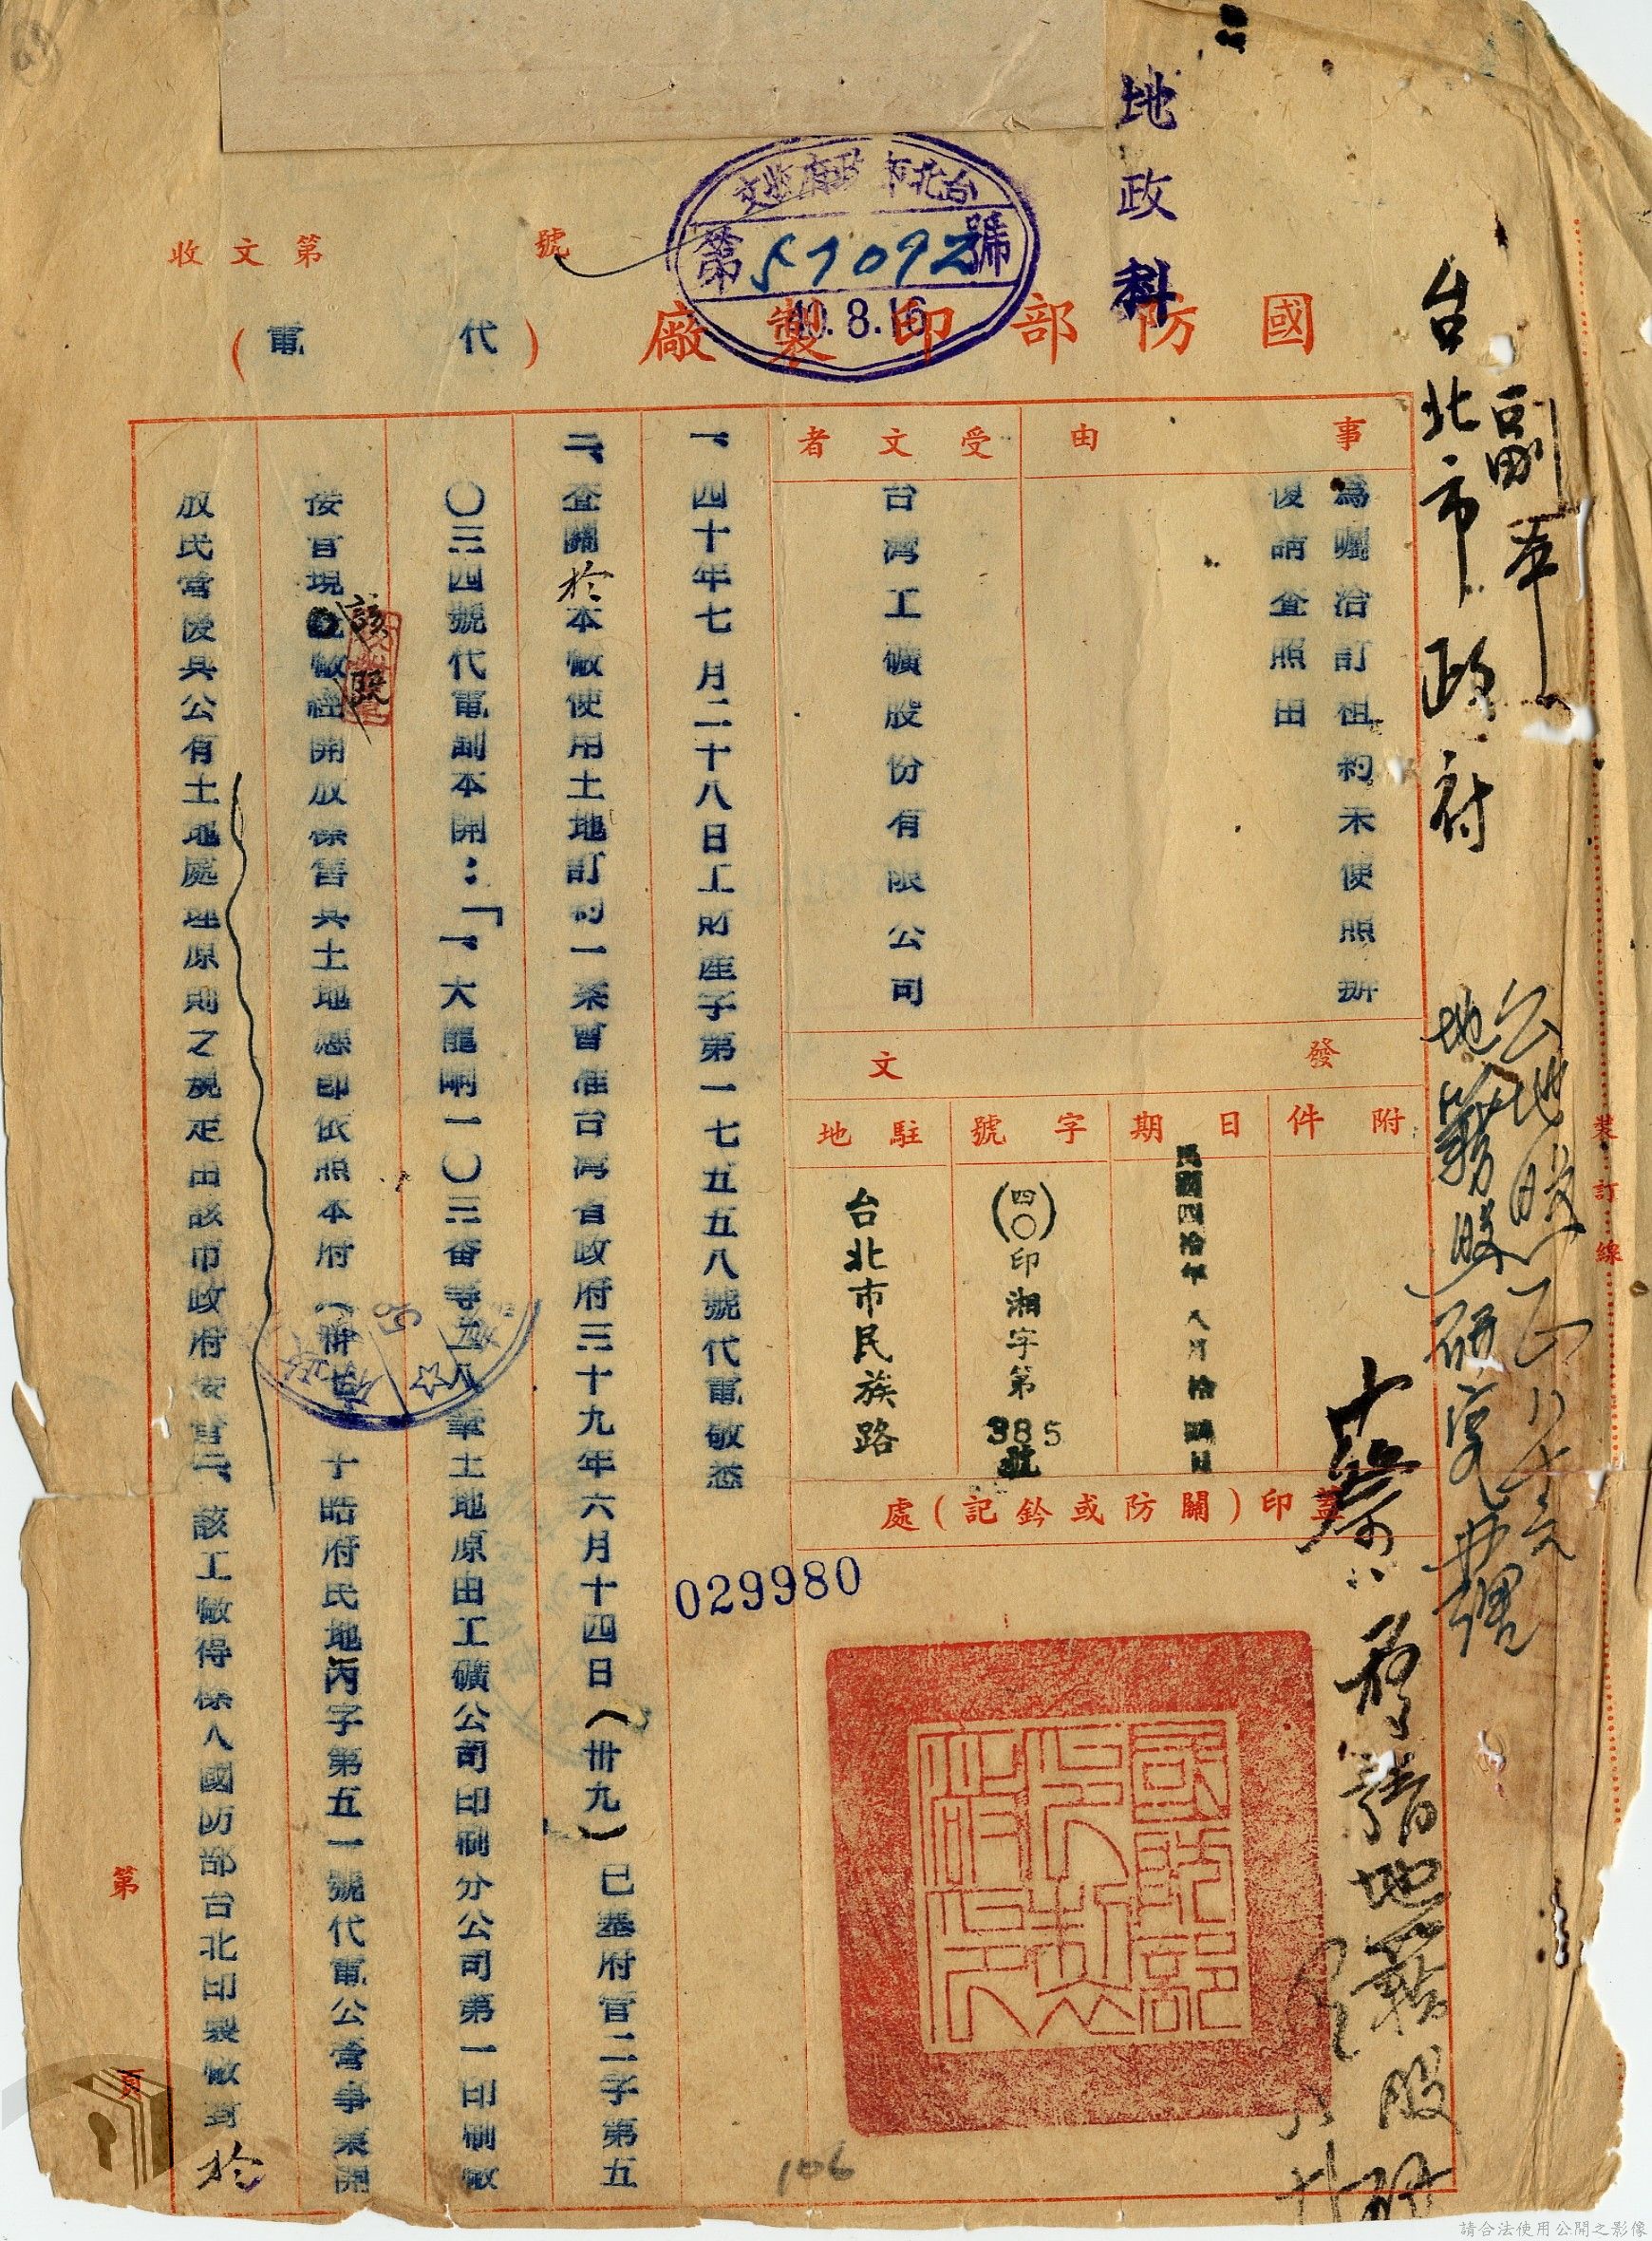 地政科
台北市政府收文
第57092號
40.8.16
收文第 號
國防部印製廠(代電)
副本
台北市政府
事由
為囑洽訂租約未便照辦
復請查照由
受文者
台灣工礦股份有限公司
發文
附件
日期
民國四拾年八月拾 日
字號
(四〇)印湘字第385號
駐地
台北市民族路
蓋印(關防或鈐記)處
029980
國防部印製廠
一、四十年七月二十八日工財產字第一七五五八號代電敬悉
二、查關於本廠使用土地訂約一案曾准台灣省政府三十九年六月十四日(卅九)巳 府官二字第五
〇三四號代電副本開:「一、大龍峒一〇三番等五八筆土地原由工礦公司印刷分公司第一印刷廠
接管現該廠經開放標售其土地應即依照本府(卅 )子皓府民地丙字第五一號代電公營事業開
放民營後其公有土地處理原則之規定由該市政府接管二、該工廠得標人國防部台北印製廠對於
公地股
地籍股研究辦理
地籍股研
裝訂線
第
頁
106
請合法使用公開之影像